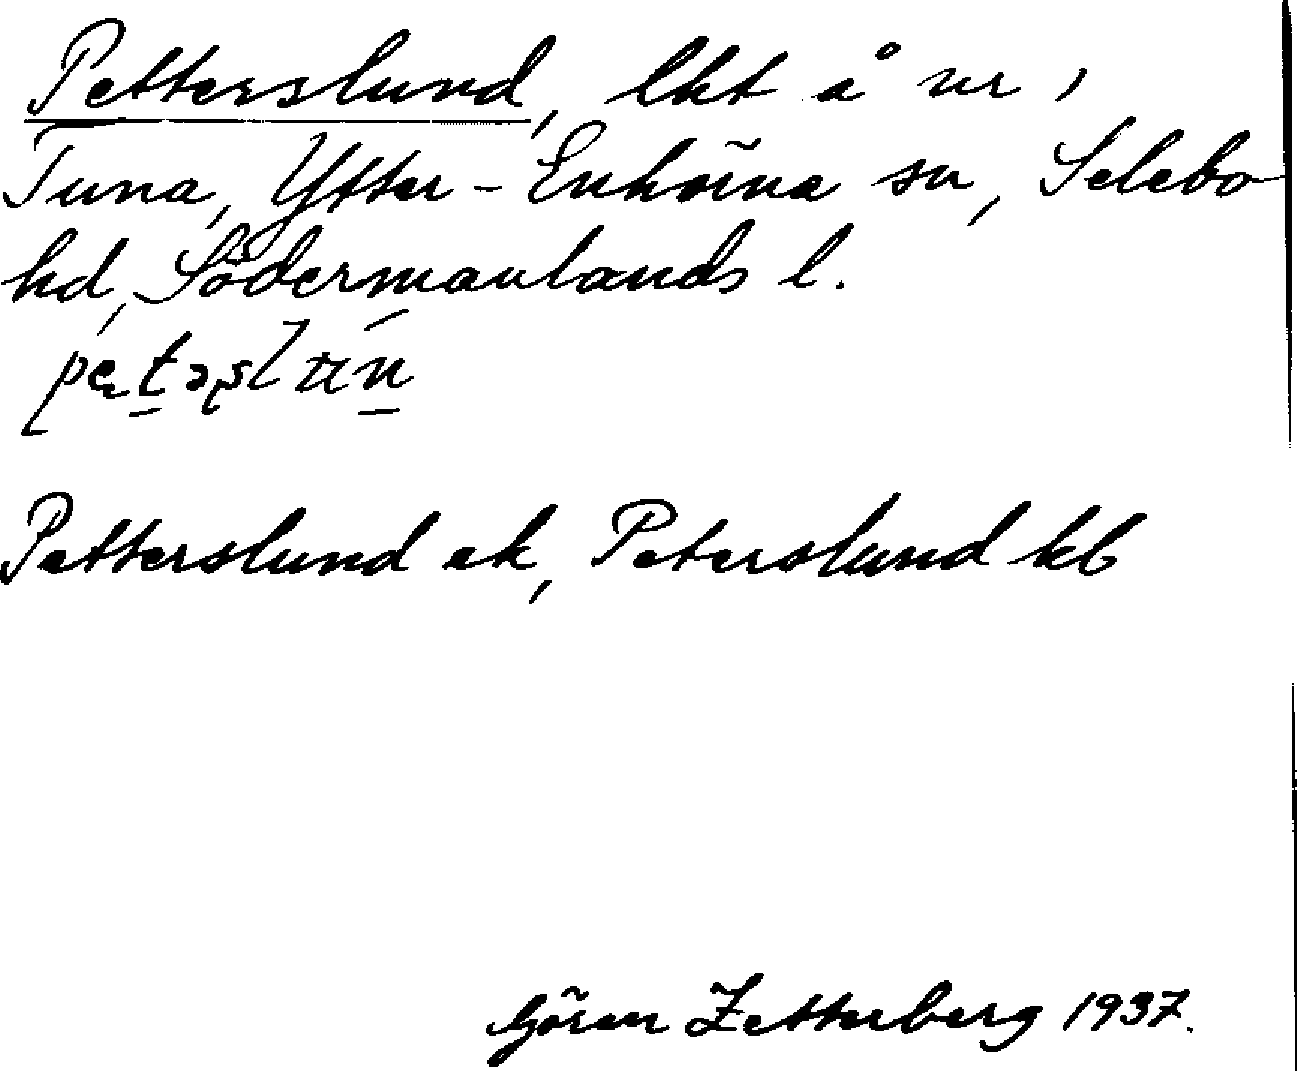 Petterslund, lkt å nr 1
Tuna, Ytter-Enhörna sn, Selebo
hd, Södermanlands l.
Petterslund ek, Peterslund kb
Göran Zetterberg 1937.